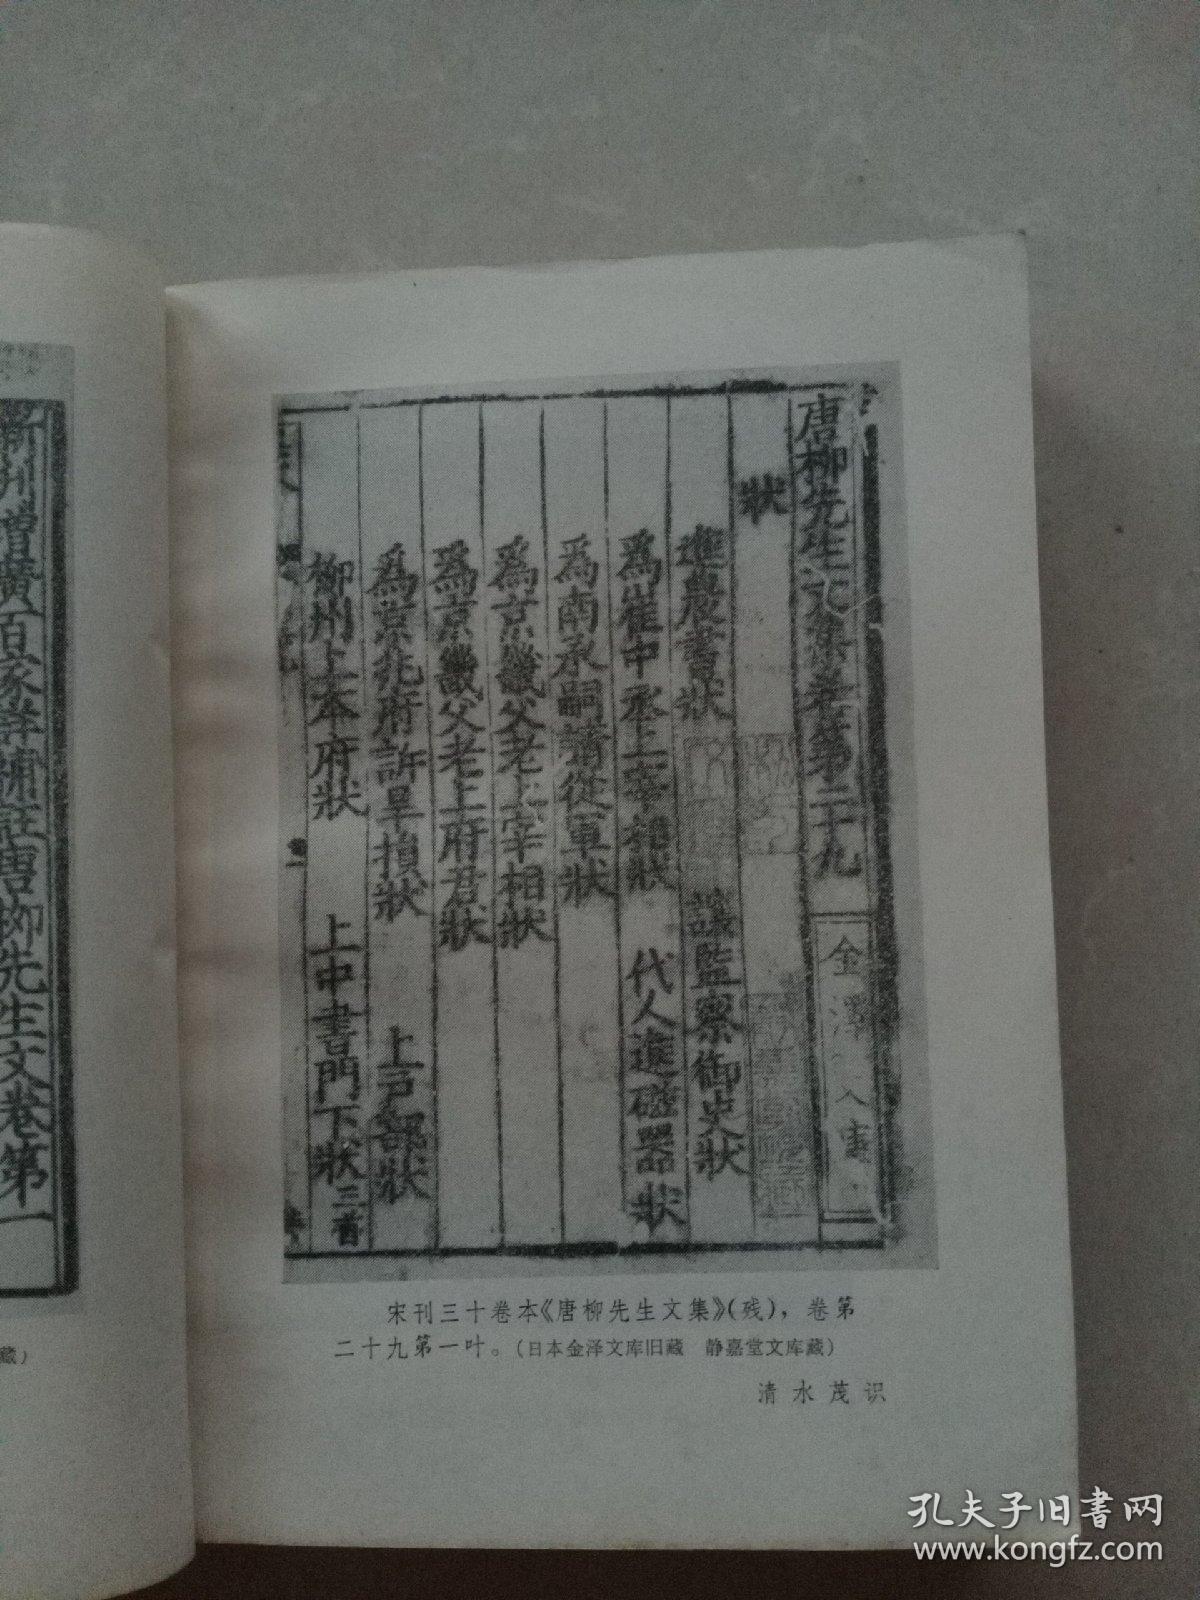 唐柳先生文集卷第二十九
狀
進農書狀 讓監察御史狀
為崔中丞上宰相狀 代人進磁器狀
為南承嗣請從軍狀
為京畿父老上宰相狀
為京畿父老上府君狀
為京兆府訴旱損狀 上戶部狀
柳州上本府狀 上中書門下狀三首
金澤
宋刊三十卷本《唐柳先生文集》(残)，卷第
二十九第一叶。(日本金泽文库旧藏 静嘉堂文库藏)
清水茂识
新刋增廣百家詳補註唐柳先生文卷第一
藏)
孔夫子旧书网
www.kongfz.com